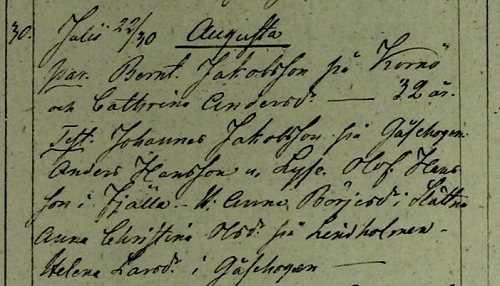 30. Julii 22/30 Augusta
par. Bernt. Jakobsson på Kornö
och Cathrina Andersd. — 32 år.
Test. Johannes Jakobsson på Gåsehogen.
Anders Hansson u. Lyse. Olof Hans
son i Fjälla – H. Anna Börjesd. i Slättna
Anna Christina Olsd. på Lindholmen –
Helena Larsd. i Gåsehogen —